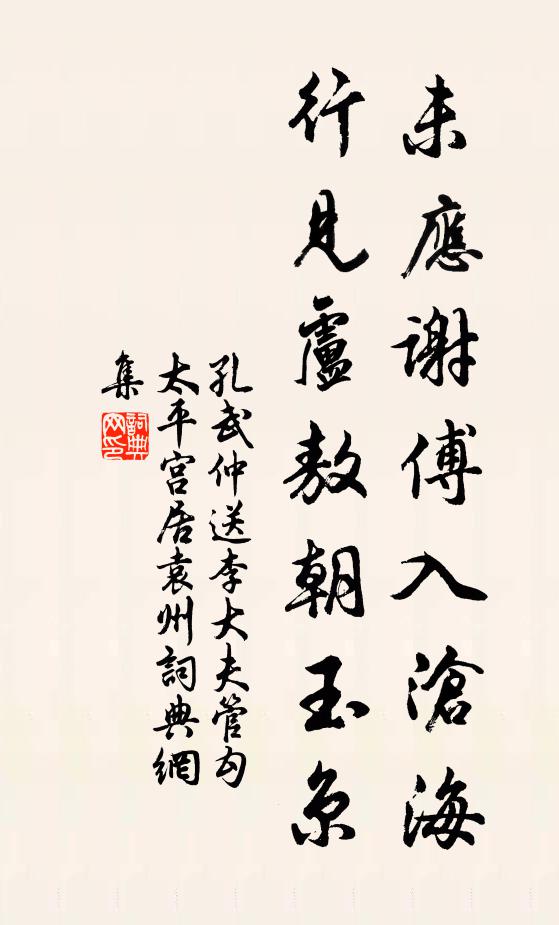 未應謝傅入滄海
行見廬敖朝玉京
孔武仲送李大夫管勾
太平宮居袁州詞典網
集
詞典网印